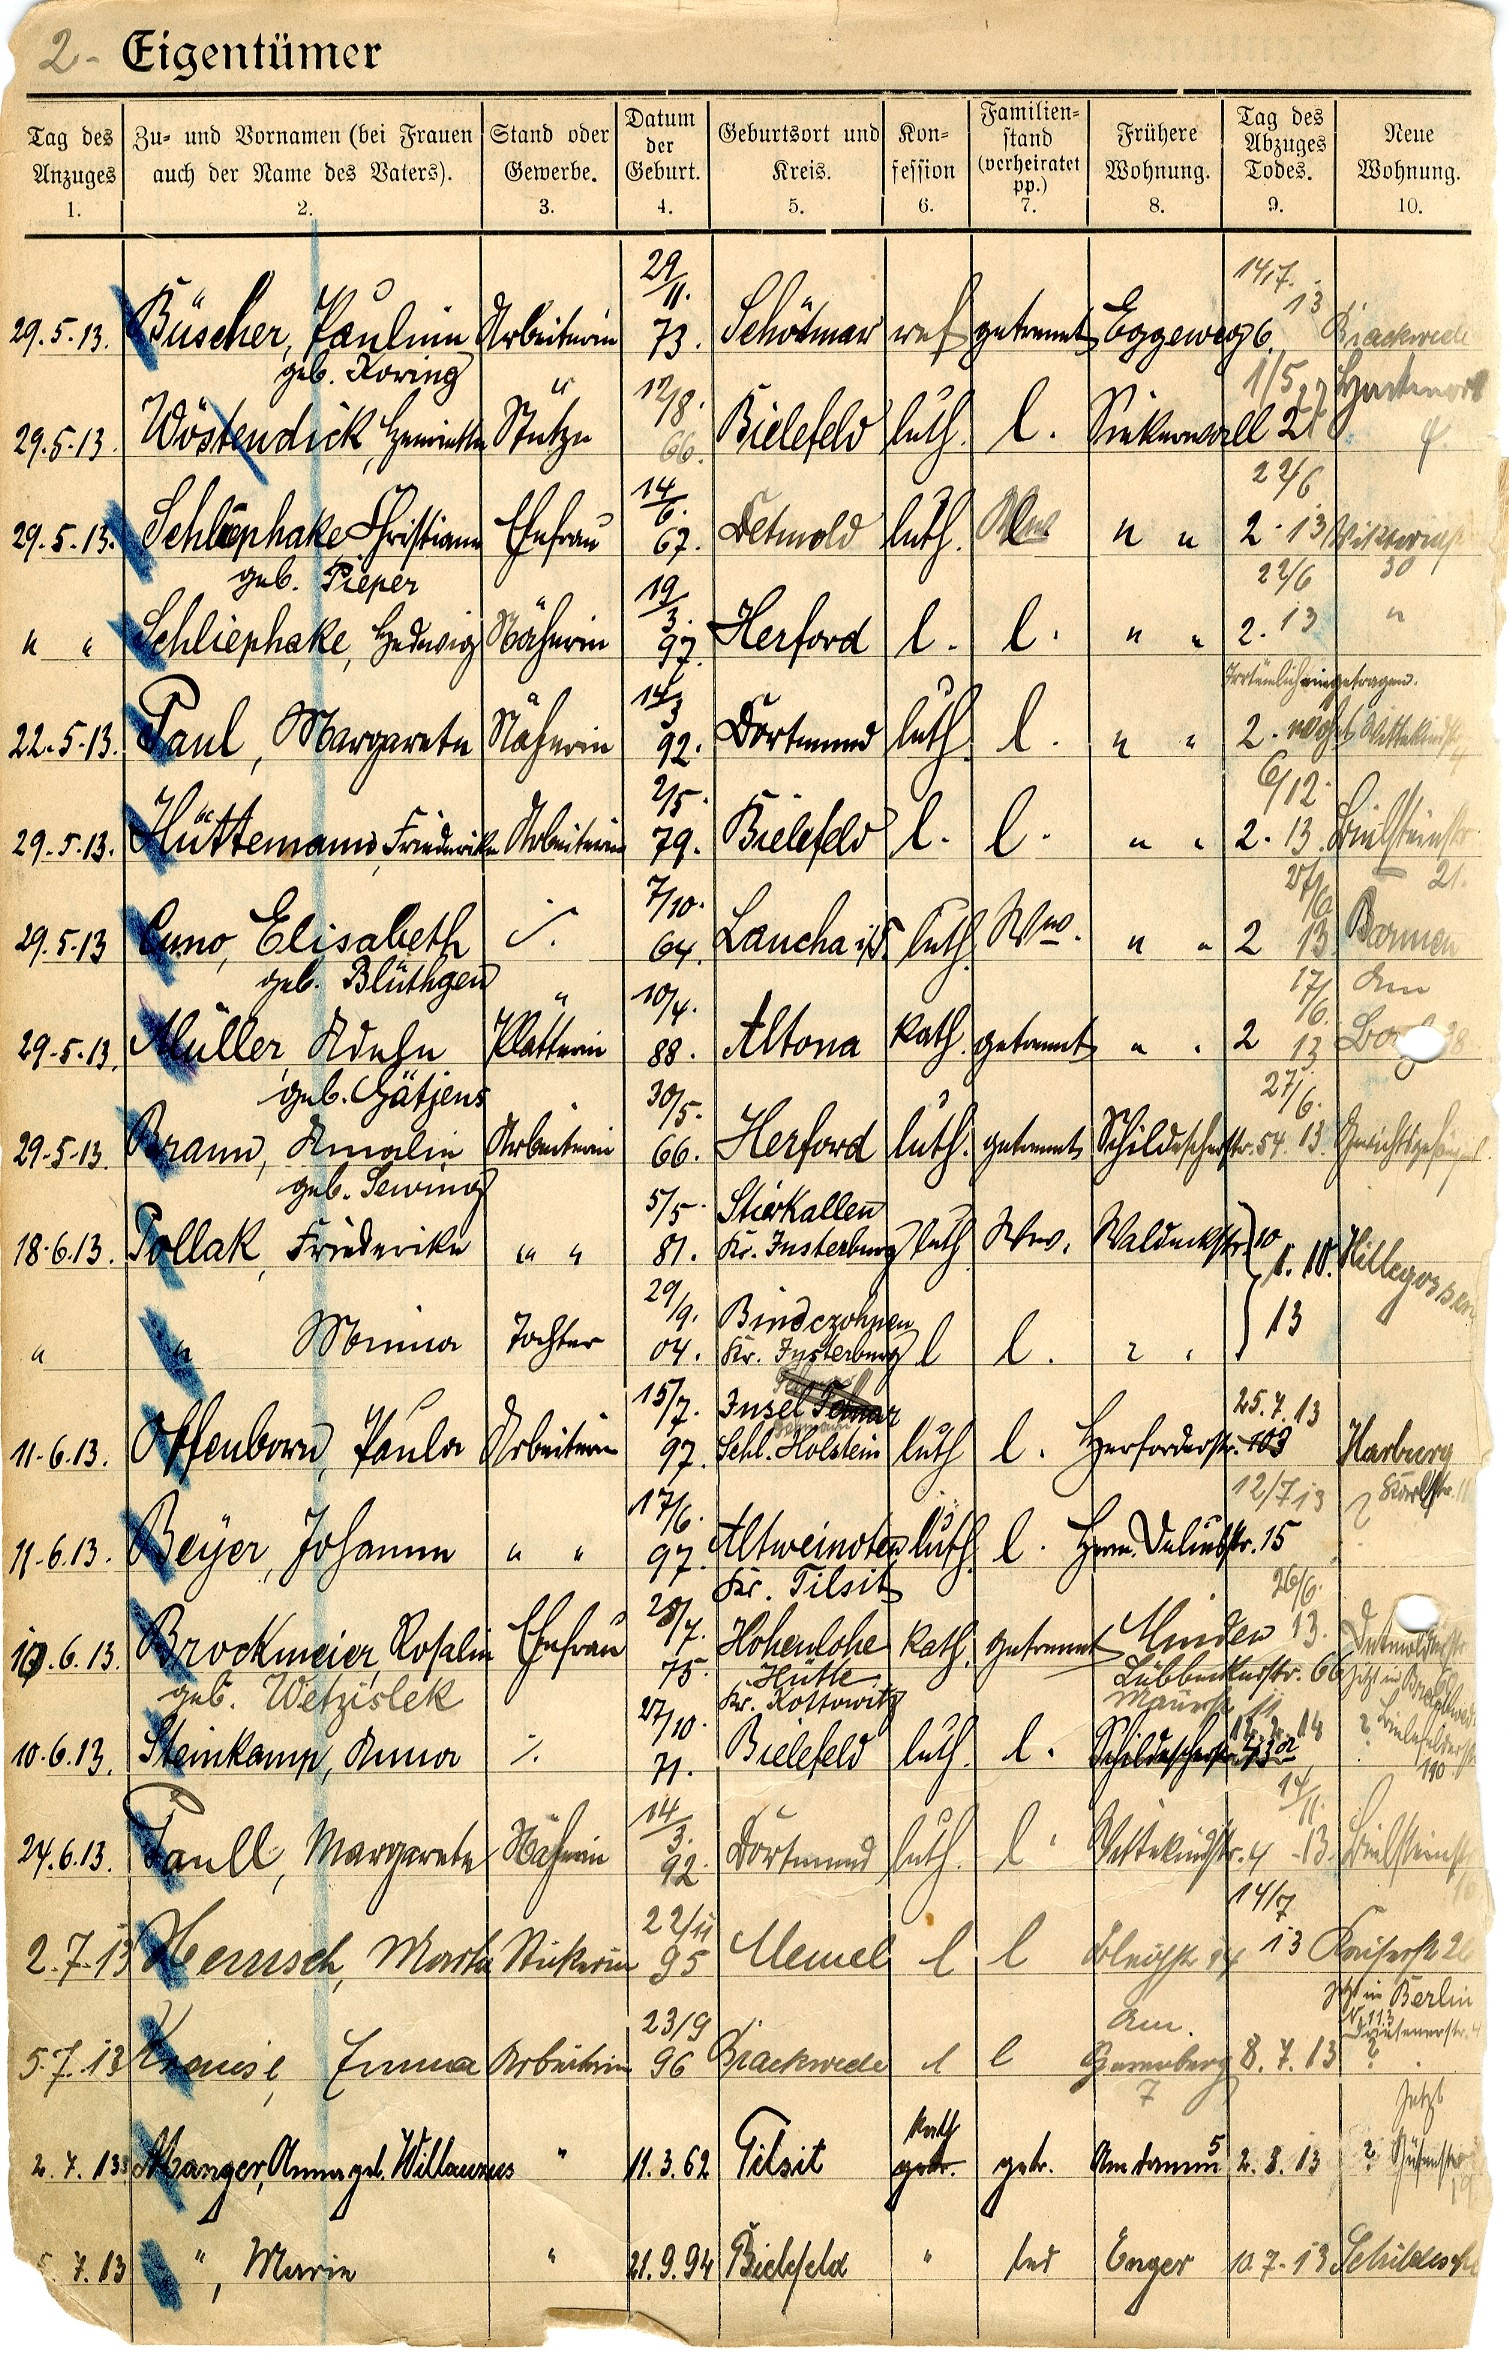 2- Eigentümer
Tag des Anzuges 1. Zu- und Vornamen (bei Frauen auch der Name des Vaters). 2. Stand oder Gewerbe. 3. Datum der Geburt. 4. Geburtsort und Kreis. 5. Kon-fession 6. Familien-stand (verheiratet pp.) 7. Frühere Wohnung. 8. Tag des Abzuges Todes. 9. Neue Wohnung. 10.
29.5.13. Büscher, Pauline Arbeiterin 29/11. 73. Schötmar ref getrennt Eggeweg 6. 14.7.13 Brackwede
geb. Koring
29.5.13. Wöstendick, Henriette Stütze 12/8. 66. Bielefeld luth. l. Siekerwall 2 1/5
29.5.13. Schliephake Christiane Ehefrau 14/6. 67. Detmold luth. " " 2 22/6 13
geb. Pieper
" " Schliephake, Hedwig Näherin 19/3. 97. Herford l. l. " " 2. 22/6 13 "
Irrtümlich eingetragen.
22.5.13. Paul, Margarete Näherin 14/3 92. Dortmund luth. l. " " 2. wohnt Wittekindstr. 4
29.5.13. Hüttemann, Friederike Arbeiterin 2/5. 79. Bielefeld l. l. " " 2. 6/12. 13. 21.
29.5.13 Cuno, Elisabeth ./. 7/10. 64. Laucha luth. Ww. " " 2 27/6. 13. Barmen
geb. Blüthgen
29.5.13. Müller, Adele Plätterin 10/4. 88. Altona kath. getrennt " " 2 17/6. 13 Am
geb. Gätjens
29.5.13. Braun, Amalie Arbeiterin 30/5. 66. Herford luth. getrennt Schildeschestr. 54. 27/6. 13. Gerichtsgefängnis
geb. Sewing
18.6.13. Pollak, Friederike " " 5/5. 81. Stirkallen Kr. Insterburg luth Ww. Waldeckstr. 10 1.10. Hillegossen
" " Minna Tochter 29/9. 04. Bindczohnen Kr. Insterburg l l. " " 13
11.6.13. Offenborn, Paula Arbeiterin 15/7. 97. Insel Schl. Holstein luth l. Herforderstr. 103 25.7.13 Harburg
11.6.13. Beyer, Johanne " " 17/6. 97. Altweinoten Kr. Tilsit luth. l. Herm. Deliusstr. 15 12/7 13 ?
10.6.13. Brockmeier, Rosalie Ehefrau 75. Hohenlohe Hütte Kr. Kattowitz kath. getrennt Minden Lübbeckerstr. 66 26/6. 13.
geb. Wetzislek
10.6.13. Steinkamp, Anna ./. 27/10. 71. Bielefeld luth. l. Schildeschestr. ?
24.6.13. Paull, Margarete Näherin 14/3. 92. Dortmund luth. l. Wittekindstr. 4 14/11. 13.
2.7.13 Hensch, Martha Stickerin 22/11 95 Memel l l 14 14/7 13 Kaiserstr. 20
jetzt in Berlin
5.7.13 Krause, Emma Arbeiterin 23/9 96 Brackwede l l Am 7 8.7.13 ?
2.7.13 Manger, Anna geb. Willaunus " 11.3.62 Tilsit kath getr. Am Damm 5 2.8.13 ? jetzt
7.13 ", Marie " 21.9.94 Bielefeld " led Enger 10.7.13 Schildesche